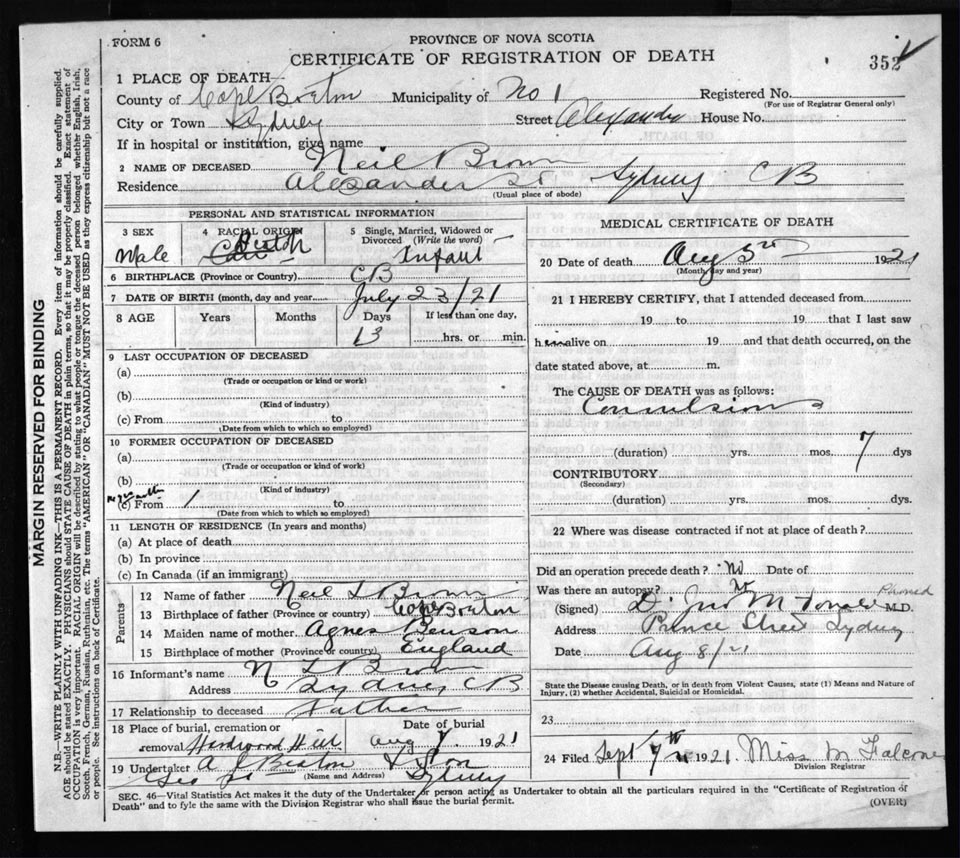 FORM 6
PROVINCE OF NOVA SCOTIA
CERTIFICATE OF REGISTRATION OF DEATH
352
1 PLACE OF DEATH—
County of Cape Breton Municipality of No 1 Registered No.
(For use of Registrar General only)
City or Town Sydney Street Alexander House No.
If in hospital or institution, give name
2 NAME OF DECEASED Neil Brown
Residence Alexander St Sydney CB
(Usual place of abode)
PERSONAL AND STATISTICAL INFORMATION
3 SEX 4 RACIAL ORIGIN 5 Single, Married, Widowed or Divorced (Write the word)
Male Infant
6 BIRTHPLACE (Province or Country) CB
7 DATE OF BIRTH (month, day and year) July 23/21
8 AGE Years Months Days If less than one day,
13 hrs. or min.
9 LAST OCCUPATION OF DECEASED
(a)
(Trade or occupation or kind or work)
(b)
(Kind of industry)
(c) From to
(Date from which to which so employed)
10 FORMER OCCUPATION OF DECEASED
(a)
(Trade or occupation or kind of work)
(b)
(Kind of industry)
(c) From to
(Date from which to which so employed)
11 LENGTH OF RESIDENCE (In years and months)
(a) At place of death
(b) In province
(c) In Canada (if an immigrant)
Parents
12 Name of father Neil L Brown
13 Birthplace of father (Province or country) Cape Breton
14 Maiden name of mother Agnes Benson
15 Birthplace of mother (Province or country) England
16 Informant's name N L Brown
Address Sydney CB
17 Relationship to deceased Father
18 Place of burial, cremation or removal Hardwood Hill
Date of burial
Aug 1921
19 Undertaker A J Beaton & Son
(Name and Address)
Geo St Sydney
MEDICAL CERTIFICATE OF DEATH
20 Date of death Aug 5 1921
(Month, day and year)
21 I HEREBY CERTIFY, that I attended deceased from
19 to 19 that I last saw
him alive on 19 and that death occurred, on the
date stated above, at m.
The CAUSE OF DEATH was as follows:
Convulsions
(duration) yrs. mos. 7 dys
CONTRIBUTORY
(Secondary)
(duration) yrs. mos. dys.
22 Where was disease contracted if not at place of death?
Did an operation precede death? No Date of
Was there an autopsy? No
(Signed) D. Jno McDonald M.D.
Address Prince Street Sydney
Date Aug 8/21
State the Disease causing Death, or in death from Violent Causes, state (1) Means and Nature of
Injury, (2) whether Accidental, Suicidal or Homicidal.
23
24 Filed Sept 1921. Miss M Falconer
Division Registrar
SEC. 46—Vital Statistics Act makes it the duty of the Undertaker or person acting as Undertaker to obtain all the particulars required in the "Certificate of Registration of
Death" and to fyle the same with the Division Registrar who shall issue the burial permit.
(OVER)
MARGIN RESERVED FOR BINDING
N.B.—WRITE PLAINLY WITH UNFADING INK—THIS IS A PERMANENT RECORD. Every item of information should be carefully supplied.
AGE should be stated EXACTLY. PHYSICIANS should STATE CAUSE OF DEATH in plain terms, so that it may be properly classified. Exact statement of
OCCUPATION is very important. RACIAL ORIGIN will be described by stating to what people or tongue the deceased person belonged whether English, Irish,
Scotch, French, German, Russian, Ruthenian, etc. The terms "AMERICAN" OR "CANADIAN" MUST NOT BE USED as they express citizenship but not a race
or people. See instructions on back of Certificate.